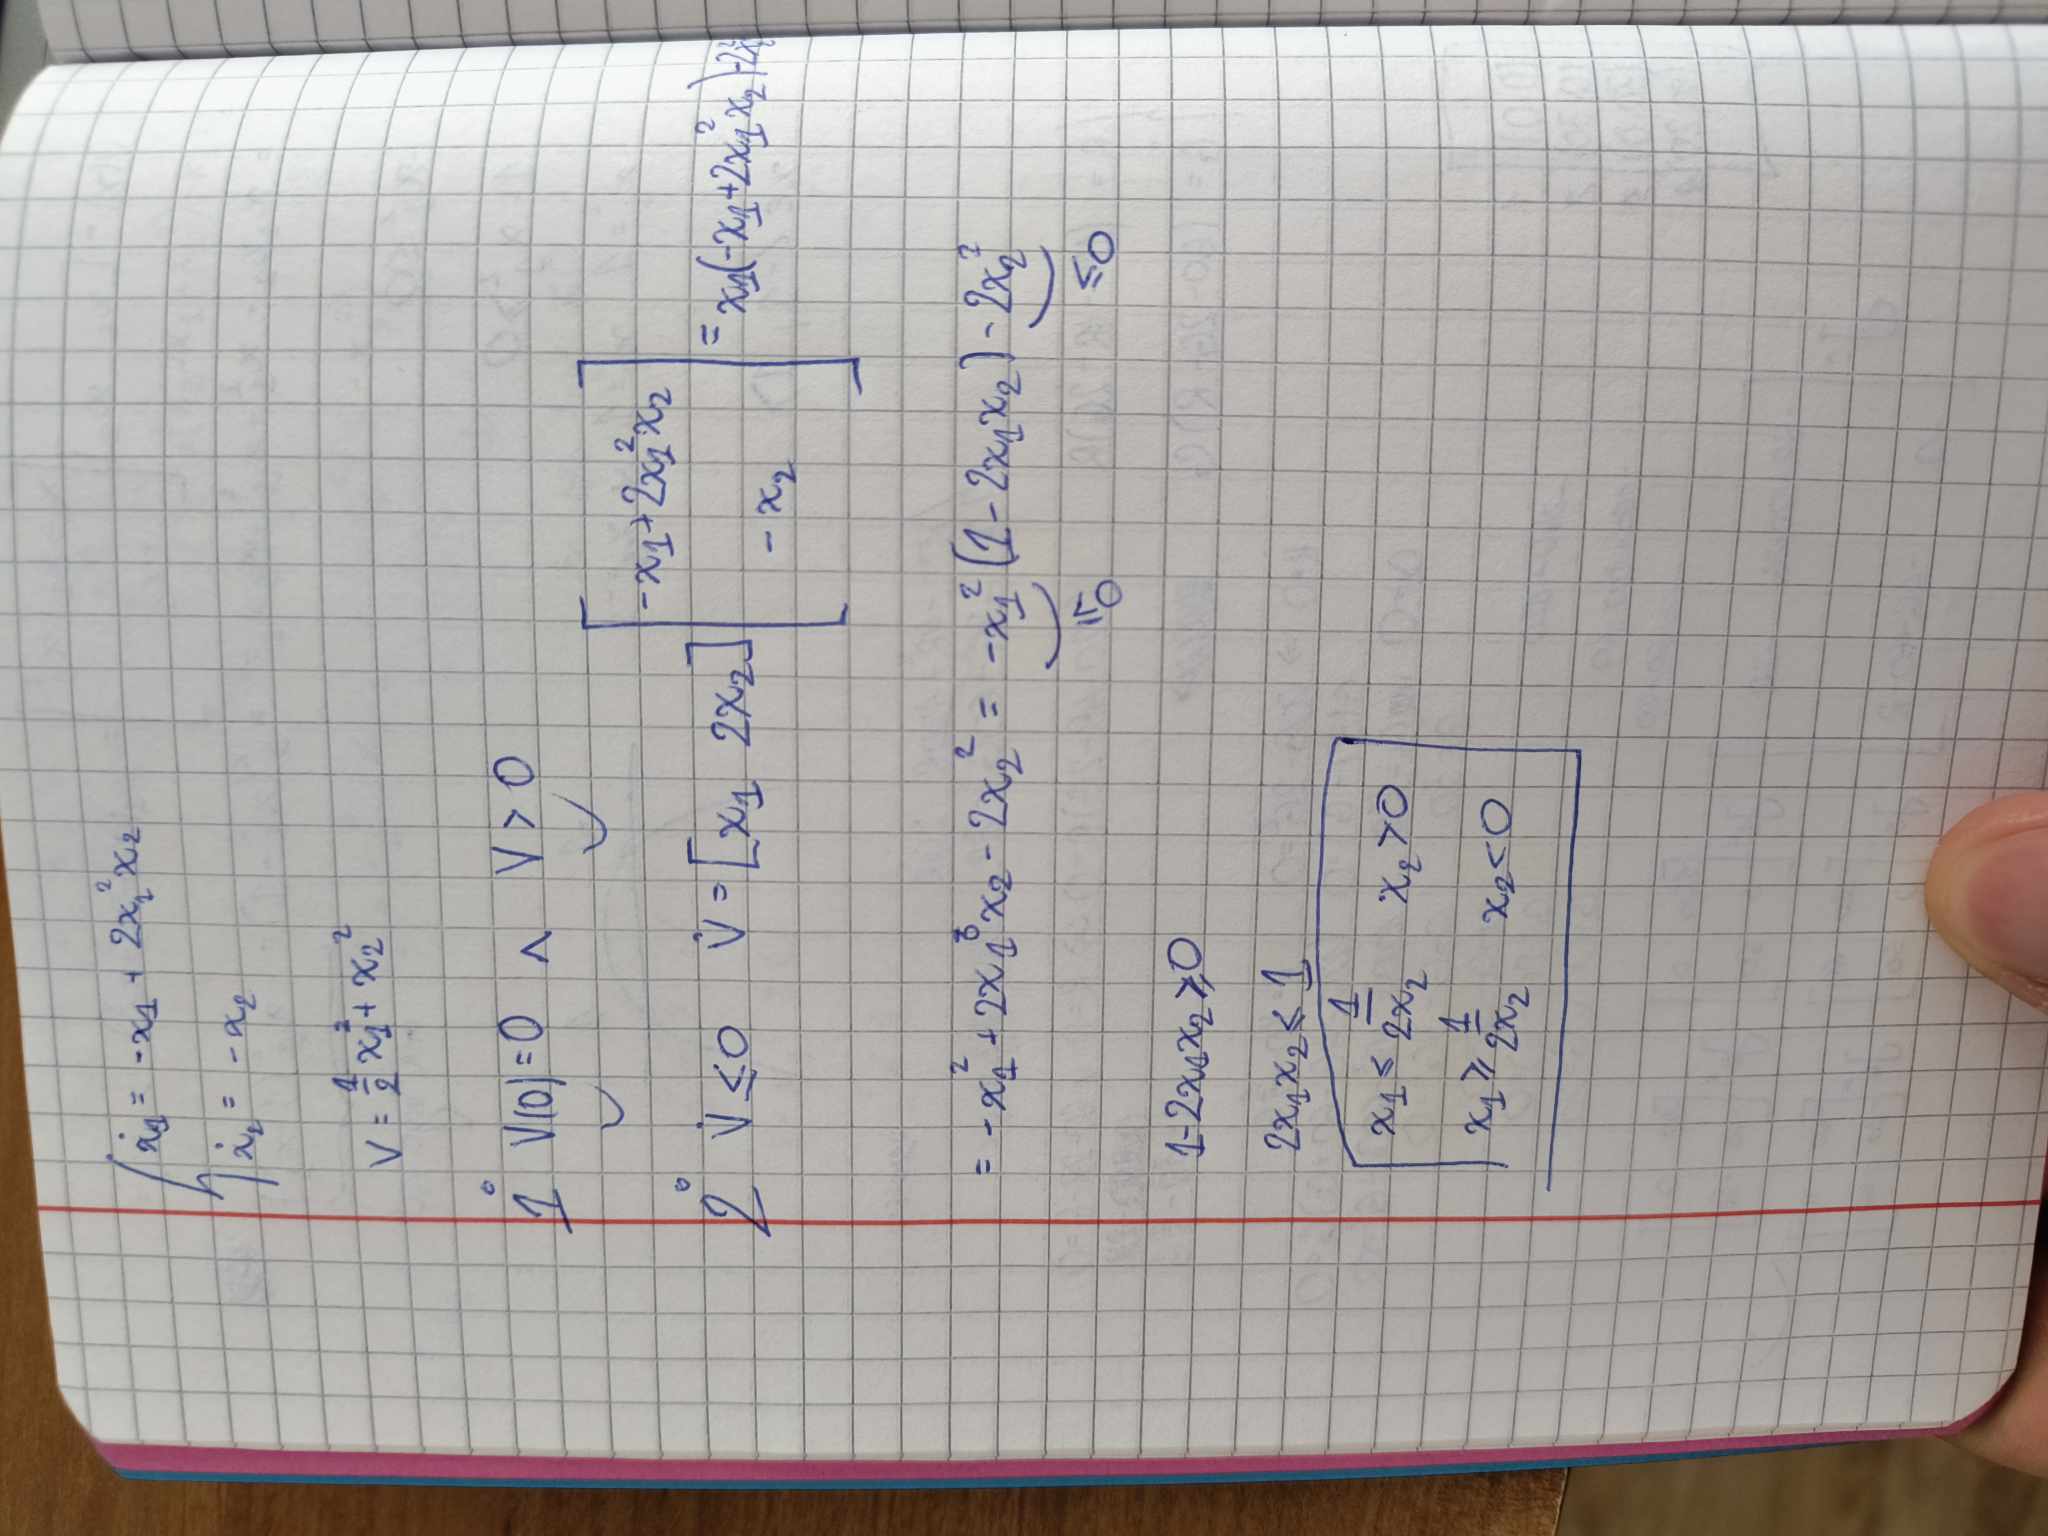 ẋ₁ = -x₁ + 2x₁²x₂
ẋ₂ = -x₂
V = 1/2 x₁² + x₂²
1° V(0)=0 ∧ V>0
2° V̇ ≤ 0 V̇ = [x₁ 2x₂] [-x₁+2x₁²x₂
-x₂] = x₁(-x₁+2x₁²x₂)-2x₂²
= -x₁² + 2x₁³x₂ - 2x₂² = -x₁²(1-2x₁x₂) - 2x₂²
≤0 ≤0
1-2x₁x₂ ≥ 0
2x₁x₂ ≤ 1
x₁ ≤ 1/2x₂ x₂>0
x₁ ≥ 1/2x₂ x₂<0